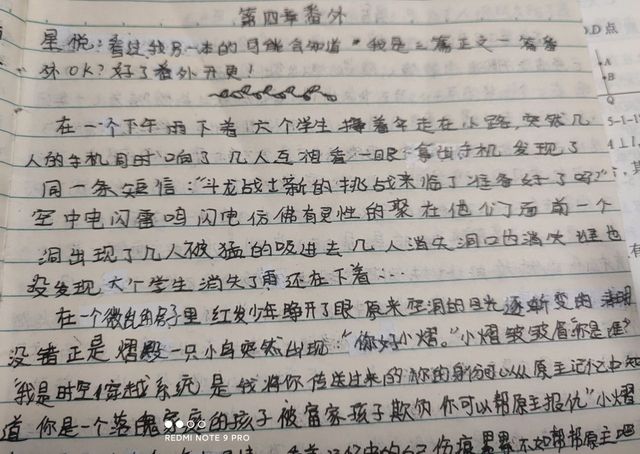 第四章番外
星悦:看过我另一本的可能会知道,我是三篇正文一篇番
外OK?好了番外开更!
在一个下午雨下着 六个学生撑着伞走在小路,突然几
人的手机同时响了几人互相看一眼 拿出手机 发现了
同一条短信:"斗龙战士新的挑战来临了准备好了吗?"
空中电闪雷鸣闪电仿佛有灵性的聚在他们面前一个
洞出现了几人被猛的吸进去几人消失洞口也消失 谁也
没发现 六个学生消失了雨还在下着...
在一个微乱的房子里 红发少年睁开了眼 原来空洞的目光逐渐变的清明
没错正是熠殿一只小鸟突然出现:"你好小熠。"小熠皱皱眉"你是谁?"
"我是时空穿越系统 是我将你传送过来的 你的身份可以从原主记忆中知
道 你是一个落魄家庭的孩子 被富家孩子欺负 你可以帮原主报仇"小熠
伤痕累累 不如帮帮原主吧
D点
A
B
REDMI NOTE 9 PRO